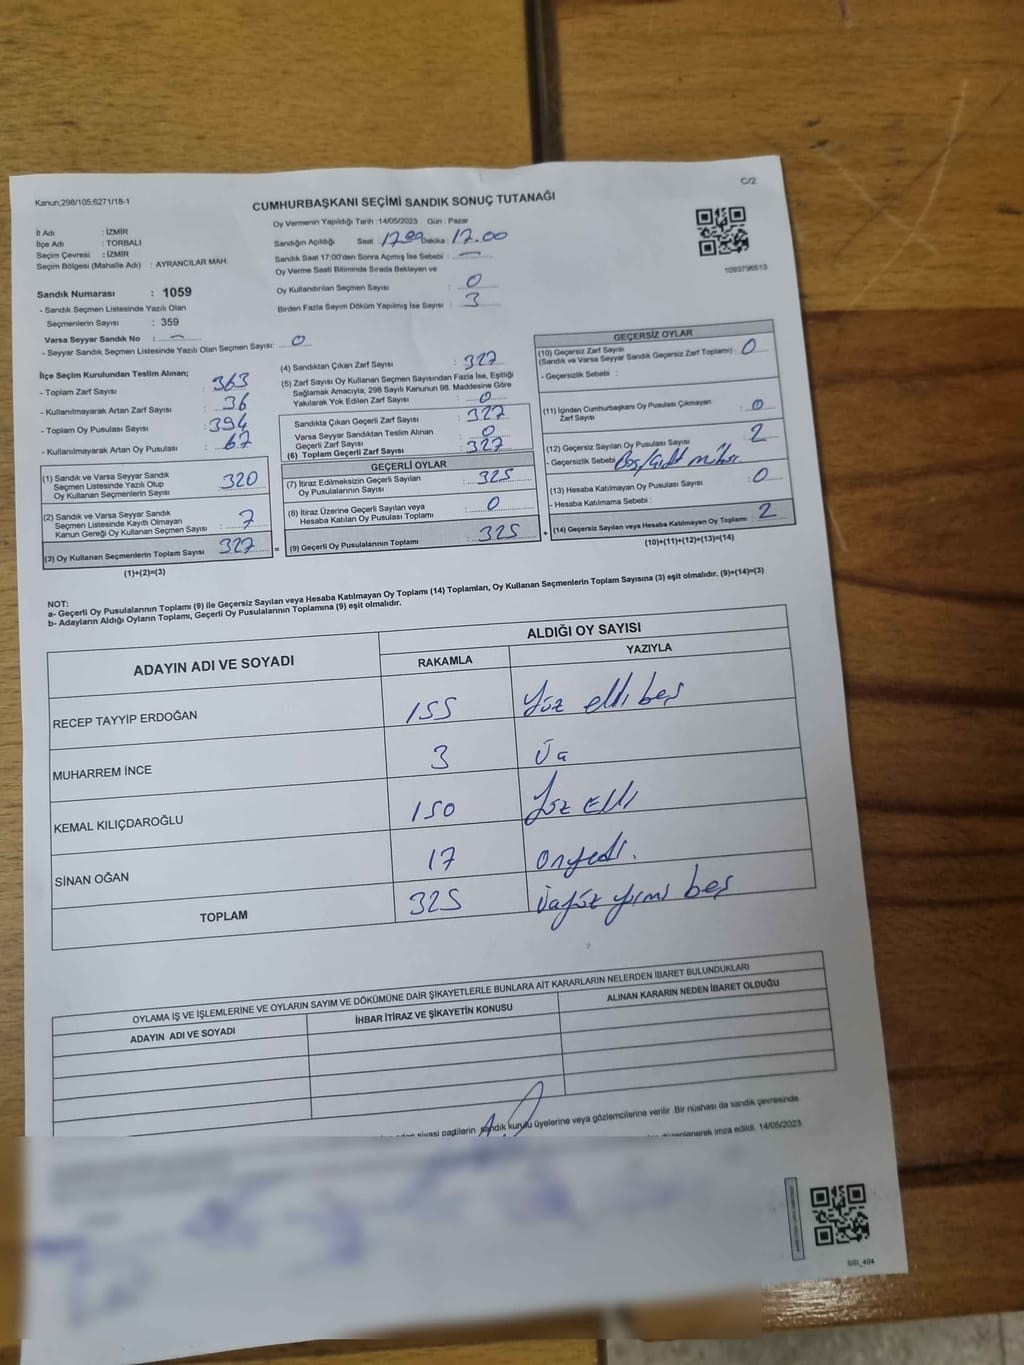 C/2
Kanun;298/105;6271/18-1
CUMHURBAŞKANI SEÇİMİ SANDIK SONUÇ TUTANAĞI
Oy Vermenin Yapıldığı Tarih :14/05/2023 Gün : Pazar
İl Adı : İZMİR
İlçe Adı : TORBALI
Seçim Çevresi : İZMİR
Seçim Bölgesi (Mahalle Adı) : AYRANCILAR MAH.
Sandığın Açıldığı Saat : Dakika : 17.00
Sandık Saat 17:00'den Sonra Açımış İse Sebebi : —
Oy Verme Saati Bitiminde Sırada Bekleyen ve
Oy Kullandırılan Seçmen Sayısı : 0
Birden Fazla Sayım Döküm Yapılmış İse Sayısı : 3
1093796513
Sandık Numarası : 1059
- Sandık Seçmen Listesinde Yazılı Olan
Seçmenlerin Sayısı : 359
Varsa Seyyar Sandık No : —
- Seyyar Sandık Seçmen Listesinde Yazılı Olan Seçmen Sayısı: 0
İlçe Seçim Kurulundan Teslim Alınan;
- Toplam Zarf Sayısı : 363
- Kullanılmayarak Artan Zarf Sayısı : 36
- Toplam Oy Pusulası Sayısı : 394
- Kullanılmayarak Artan Oy Pusulası : 67
(1) Sandık ve Varsa Seyyar Sandık
Seçmen Listesinde Yazılı Olup
Oy Kullanan Seçmenlerin Sayısı : 320
(2) Sandık ve Varsa Seyyar Sandık
Seçmen Listesinde Kayıtlı Olmayan
Kanun Gereği Oy Kullanan Seçmen Sayısı : 7
(3) Oy Kullanan Seçmenlerin Toplam Sayısı : 327
(1)+(2)=(3)
(4) Sandıktan Çıkan Zarf Sayısı : 327
(5) Zarf Sayısı Oy Kullanan Seçmen Sayısından Fazla İse, Eşitliği
Sağlamak Amacıyla; 298 Sayılı Kanunun 98. Maddesine Göre
Yakılarak Yok Edilen Zarf Sayısı : 0
Sandıkta Çıkan Geçerli Zarf Sayısı : 327
Varsa Seyyar Sandıktan Teslim Alınan
Geçerli Zarf Sayısı : 0
(6) Toplam Geçerli Zarf Sayısı : 327
GEÇERLİ OYLAR
(7) İtiraz Edilmeksizin Geçerli Sayılan
Oy Pusulalarının Sayısı : 325
(8) İtiraz Üzerine Geçerli Sayılan veya
Hesaba Katılan Oy Pusulası Toplamı : 0
= (9) Geçerli Oy Pusulalarının Toplamı : 325
GEÇERSİZ OYLAR
(10) Geçersiz Zarf Sayısı
(Sandık ve Varsa Seyyar Sandık Geçersiz Zarf Toplamı) : 0
- Geçersizlik Sebebi :
(11) İçinden Cumhurbaşkanı Oy Pusulası Çıkmayan
Zarf Sayısı : 0
(12) Geçersiz Sayılan Oy Pusulası Sayısı : 2
- Geçersizlik Sebebi : Boş/Çift mühür
(13) Hesaba Katılmayan Oy Pusulası Sayısı : 0
- Hesaba Katılmama Sebebi :
+ (14) Geçersiz Sayılan veya Hesaba Katılmayan Oy Toplamı : 2
(10)+(11)+(12)+(13)=(14)
NOT:
a- Geçerli Oy Pusulalarının Toplamı (9) ile Geçersiz Sayılan veya Hesaba Katılmayan Oy Toplamı (14) Toplamları, Oy Kullanan Seçmenlerin Toplam Sayısına (3) eşit olmalıdır. (9)+(14)=(3)
b- Adayların Aldığı Oyların Toplamı, Geçerli Oy Pusulalarının Toplamına (9) eşit olmalıdır.
ADAYIN ADI VE SOYADI
ALDIĞI OY SAYISI
RAKAMLA YAZIYLA
RECEP TAYYİP ERDOĞAN 155 Yüz elli beş
MUHARREM İNCE 3 Üç
KEMAL KILIÇDAROĞLU 150 Yüz Elli
SİNAN OĞAN 17 Onyedi.
TOPLAM 325 Üçyüz yirmi beş
OYLAMA İŞ VE İŞLEMLERİNE VE OYLARIN SAYIM VE DÖKÜMÜNE DAİR ŞİKAYETLERLE BUNLARA AİT KARARLARIN NELERDEN İBARET BULUNDUKLARI
ADAYIN ADI VE SOYADI İHBAR İTİRAZ VE ŞİKAYETİN KONUSU ALINAN KARARIN NEDEN İBARET OLDUĞU
siyasi partilerin sandık kurulu üyelerine veya gözlemcilerine verilir. Bir nüshası da sandık çevresinde
düzenlenerek imza edildi. 14/05/2023
SSI_404